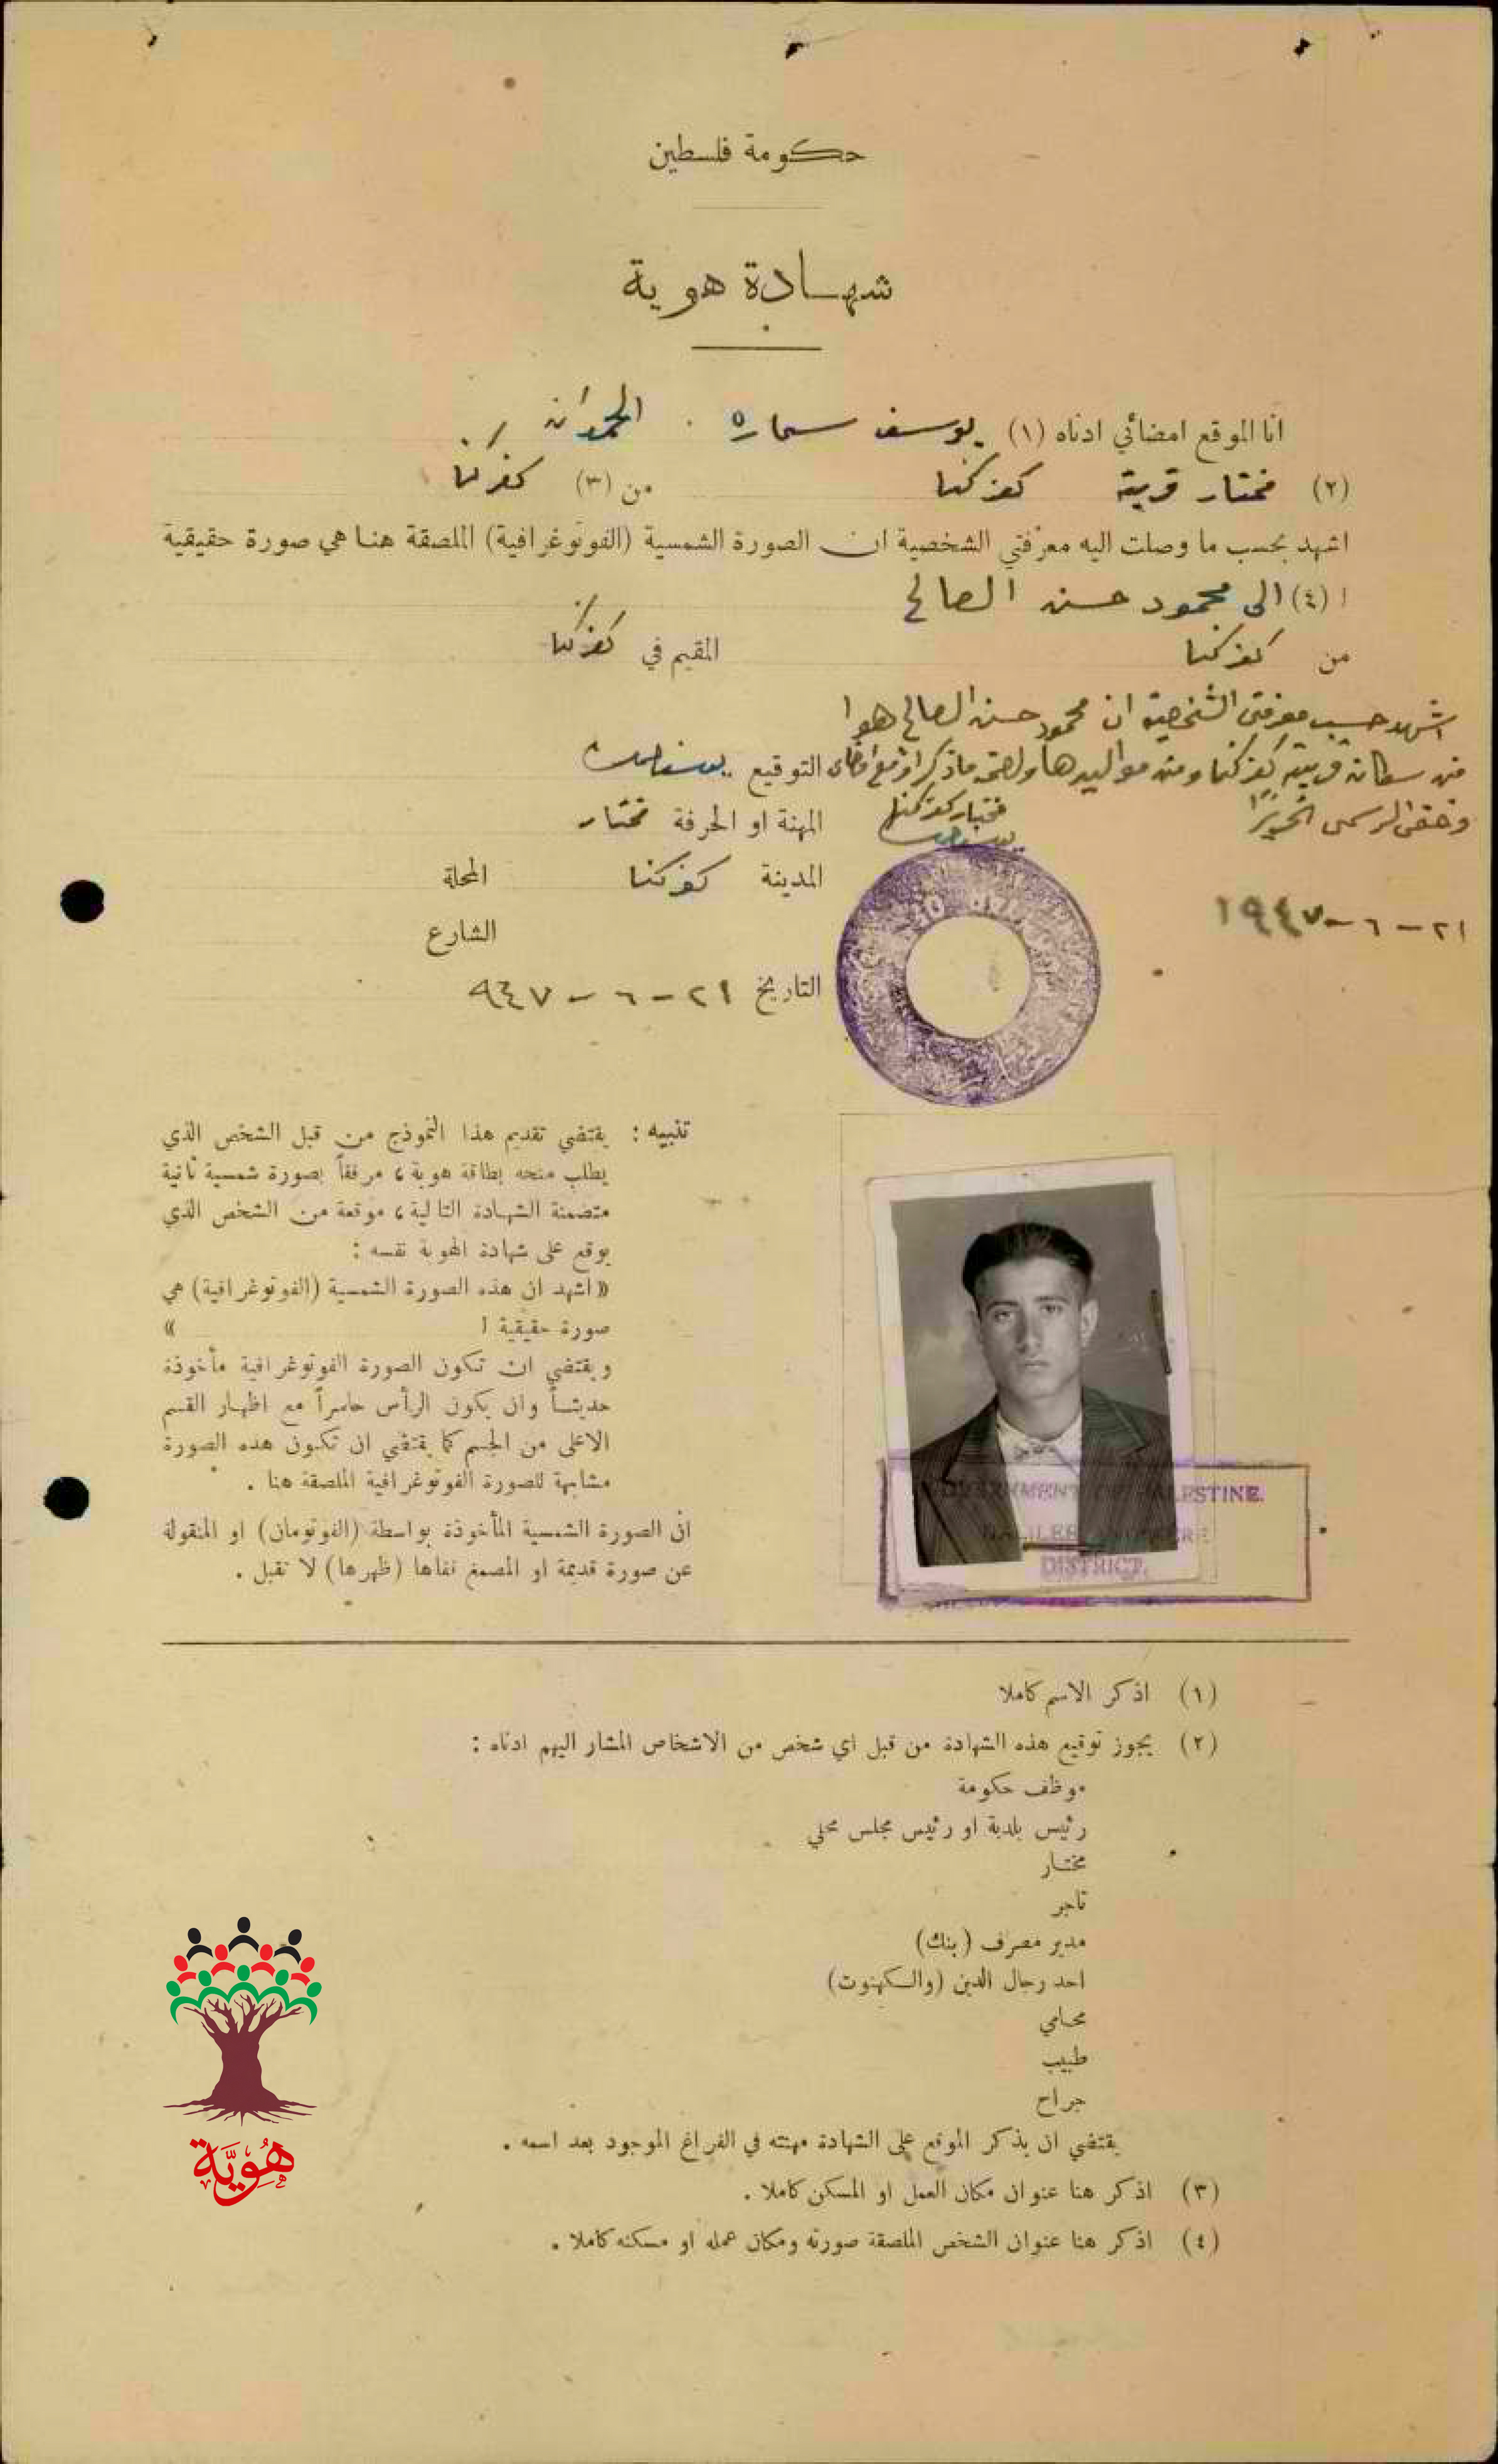 حكومة فلسطين
شهادة هوية
انا الموقع امضائي ادناه (١) يوسف سماره
(٢) مختار قرية كفركنا من (٣) كفركنا
اشهد بحسب ما وصلت اليه معرفتي الشخصية ان الصورة الشمسية (الفوتوغرافية) الملصقة هنا هي صورة حقيقية
ا (٤) الى محمود حسن الصالح
من كفركنا المقيم في كفركنا
اشهد حسب معرفتي الشخصية ان محمود حسن الصالح هوا
من سكان قرية كفركنا ومن مواليدها
التوقيع
وختمي الرسمي
مختار كفركنا
المهنة او الحرفة مختار
المدينة كفركنا المحلة
٢١-٦-١٩٤٧
الشارع
التاريخ ٢١-٦-٩٤٧
تنبيه : يقتضي تقديم هذا النموذج من قبل الشخص الذي
يطلب منحه بطاقة هوية ، مرفقاً بصورة شمسية ثانية
متضمنة الشهادة التالية ، موقعة من الشخص الذي
يوقع على شهادة الهوية نفسه :
« اشهد ان هذه الصورة الشمسية (الفوتوغرافية) هي
صورة حقيقية ا »
ويقتضي ان تكون الصورة الفوتوغرافية مأخوذة
حديثاً وان يكون الرأس حاسراً مع اظهار القسم
الاعلى من الجسم كما يقتضي ان تكون هذه الصورة
مشابهة للصورة الفوتوغرافية الملصقة هنا .
ان الصورة الشمسية المأخوذة بواسطة (الفوتومان) او المنقولة
عن صورة قديمة او المصمغ قفاها (ظهرها) لا تقبل .
GOVERNMENT OF PALESTINE.
GALILEE
DISTRICT.
(١) اذكر الاسم كاملا
(٢) يجوز توقيع هذه الشهادة من قبل اي شخص من الاشخاص المشار اليهم ادناه :
موظف حكومة
رئيس بلدية او رئيس مجلس محلي
مختار
تاجر
مدير مصرف (بنك)
احد رجال الدين (والكهنوت)
محامي
طبيب
جراح
يقتضي ان يذكر الموقع على الشهادة مهنته في الفراغ الموجود بعد اسمه .
(٣) اذكر هنا عنوان مكان العمل او المسكن كاملا .
(٤) اذكر هنا عنوان الشخص الملصقة صورته ومكان عمله او مسكنه كاملا .
هُوِيَّة